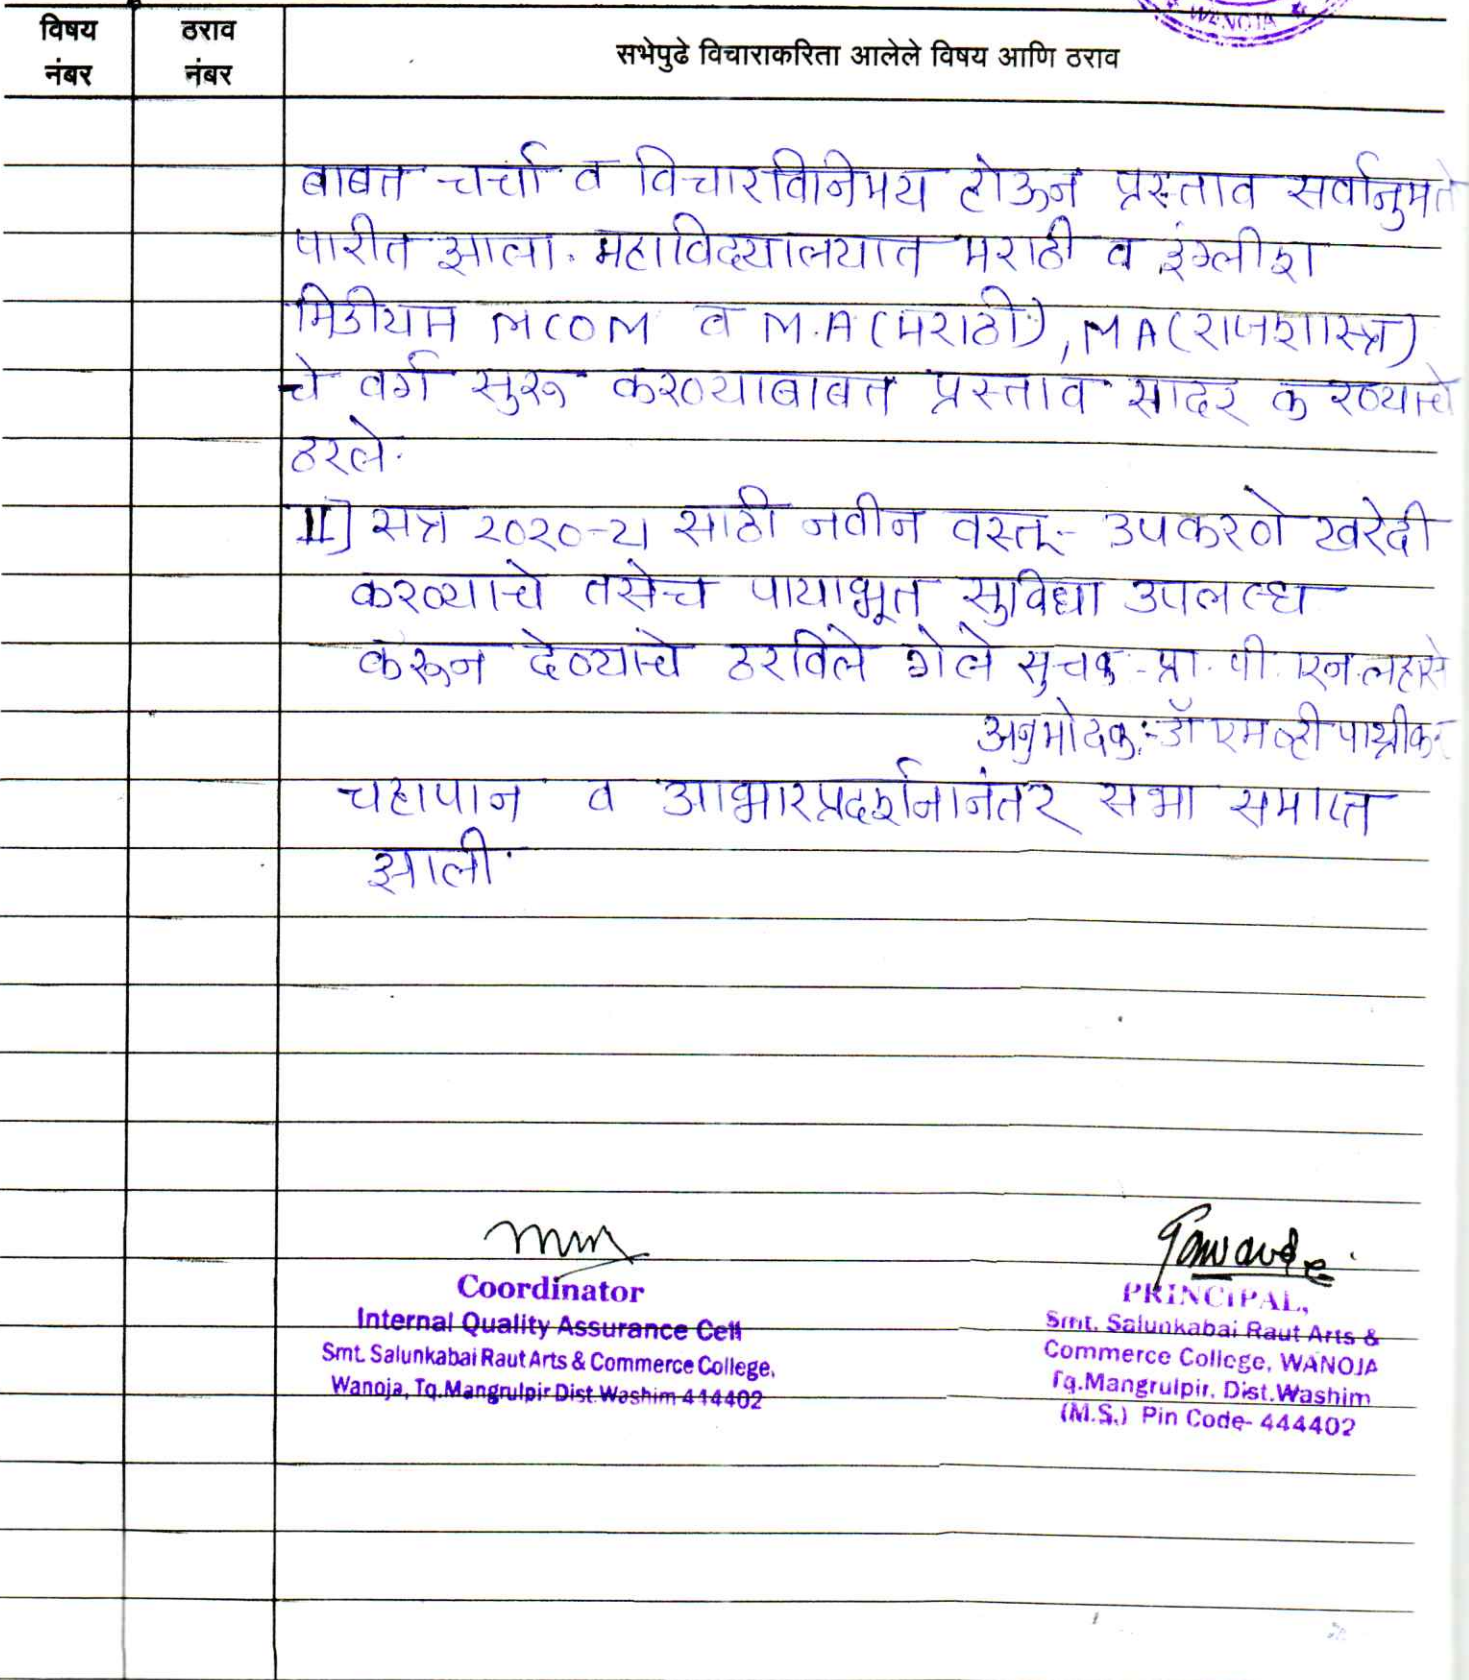 WANOJA
विषय नंबर
ठराव नंबर
सभेपुढे विचाराकरिता आलेले विषय आणि ठराव
बाबत चर्चा व विचारविनिमय होऊन प्रस्ताव सर्वानुमते
पारीत झाला. महाविद्यालयात मराठी व इंग्लीश
मिडीयम MCOM व M.A (मराठी), MA (राजशास्त्र)
चे वर्ग सुरू करण्याबाबत प्रस्ताव सादर करण्याचे
ठरले.
II] सत्र २०२०-21 साठी नवीन वस्तू- उपकरणे खरेदी
करण्याचे तसेच पायाभूत सुविधा उपलब्ध
करून देण्याचे ठरविले गेले सुचक - प्रा. पी. एन. लहासे
अनुमोदक:- डॉ एम व्ही पाथ्रीकर
चहापान व आभारप्रदर्शनानंतर सभा समाप्त
झाली.
Coordinator
Internal Quality Assurance Cell
Smt. Salunkabai Raut Arts & Commerce College,
Wanoja, Tq.Mangrulpir Dist.Washim 414402
PRINCIPAL,
Smt. Salunkabai Raut Arts &
Commerce College, WANOJA
Tq.Mangrulpir. Dist.Washim
(M.S.) Pin Code- 444402